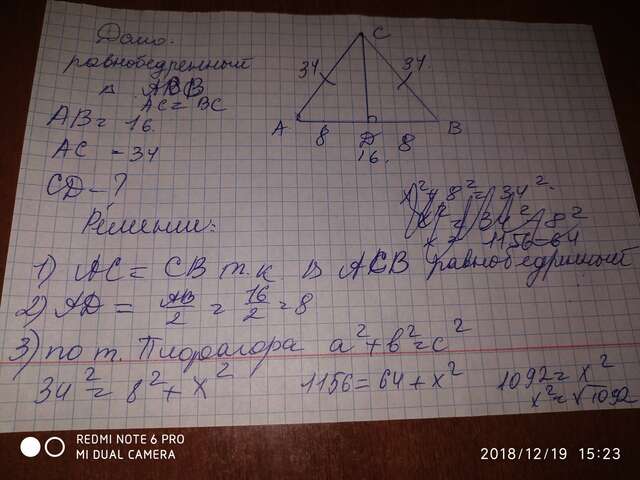 Дано.
равнобедренный
△ ACB
AC = BC
AB = 16.
AC - 34
CD - ?
C
34
34
A
8
D
8
B
16.
x² + 8² = 34²
x² = 34² - 8²
1156-64
Решение:
1) AC = CB т.к △ ACB равнобедринный
2) AD = AB/2 = 16/2 = 8
3) по т. Пифоагора a² + b² = c²
34² = 8² + x²
1156 = 64 + x²
1092 = x²
x² = √1092
REDMI NOTE 6 PRO
MI DUAL CAMERA
2018/12/19 15:23